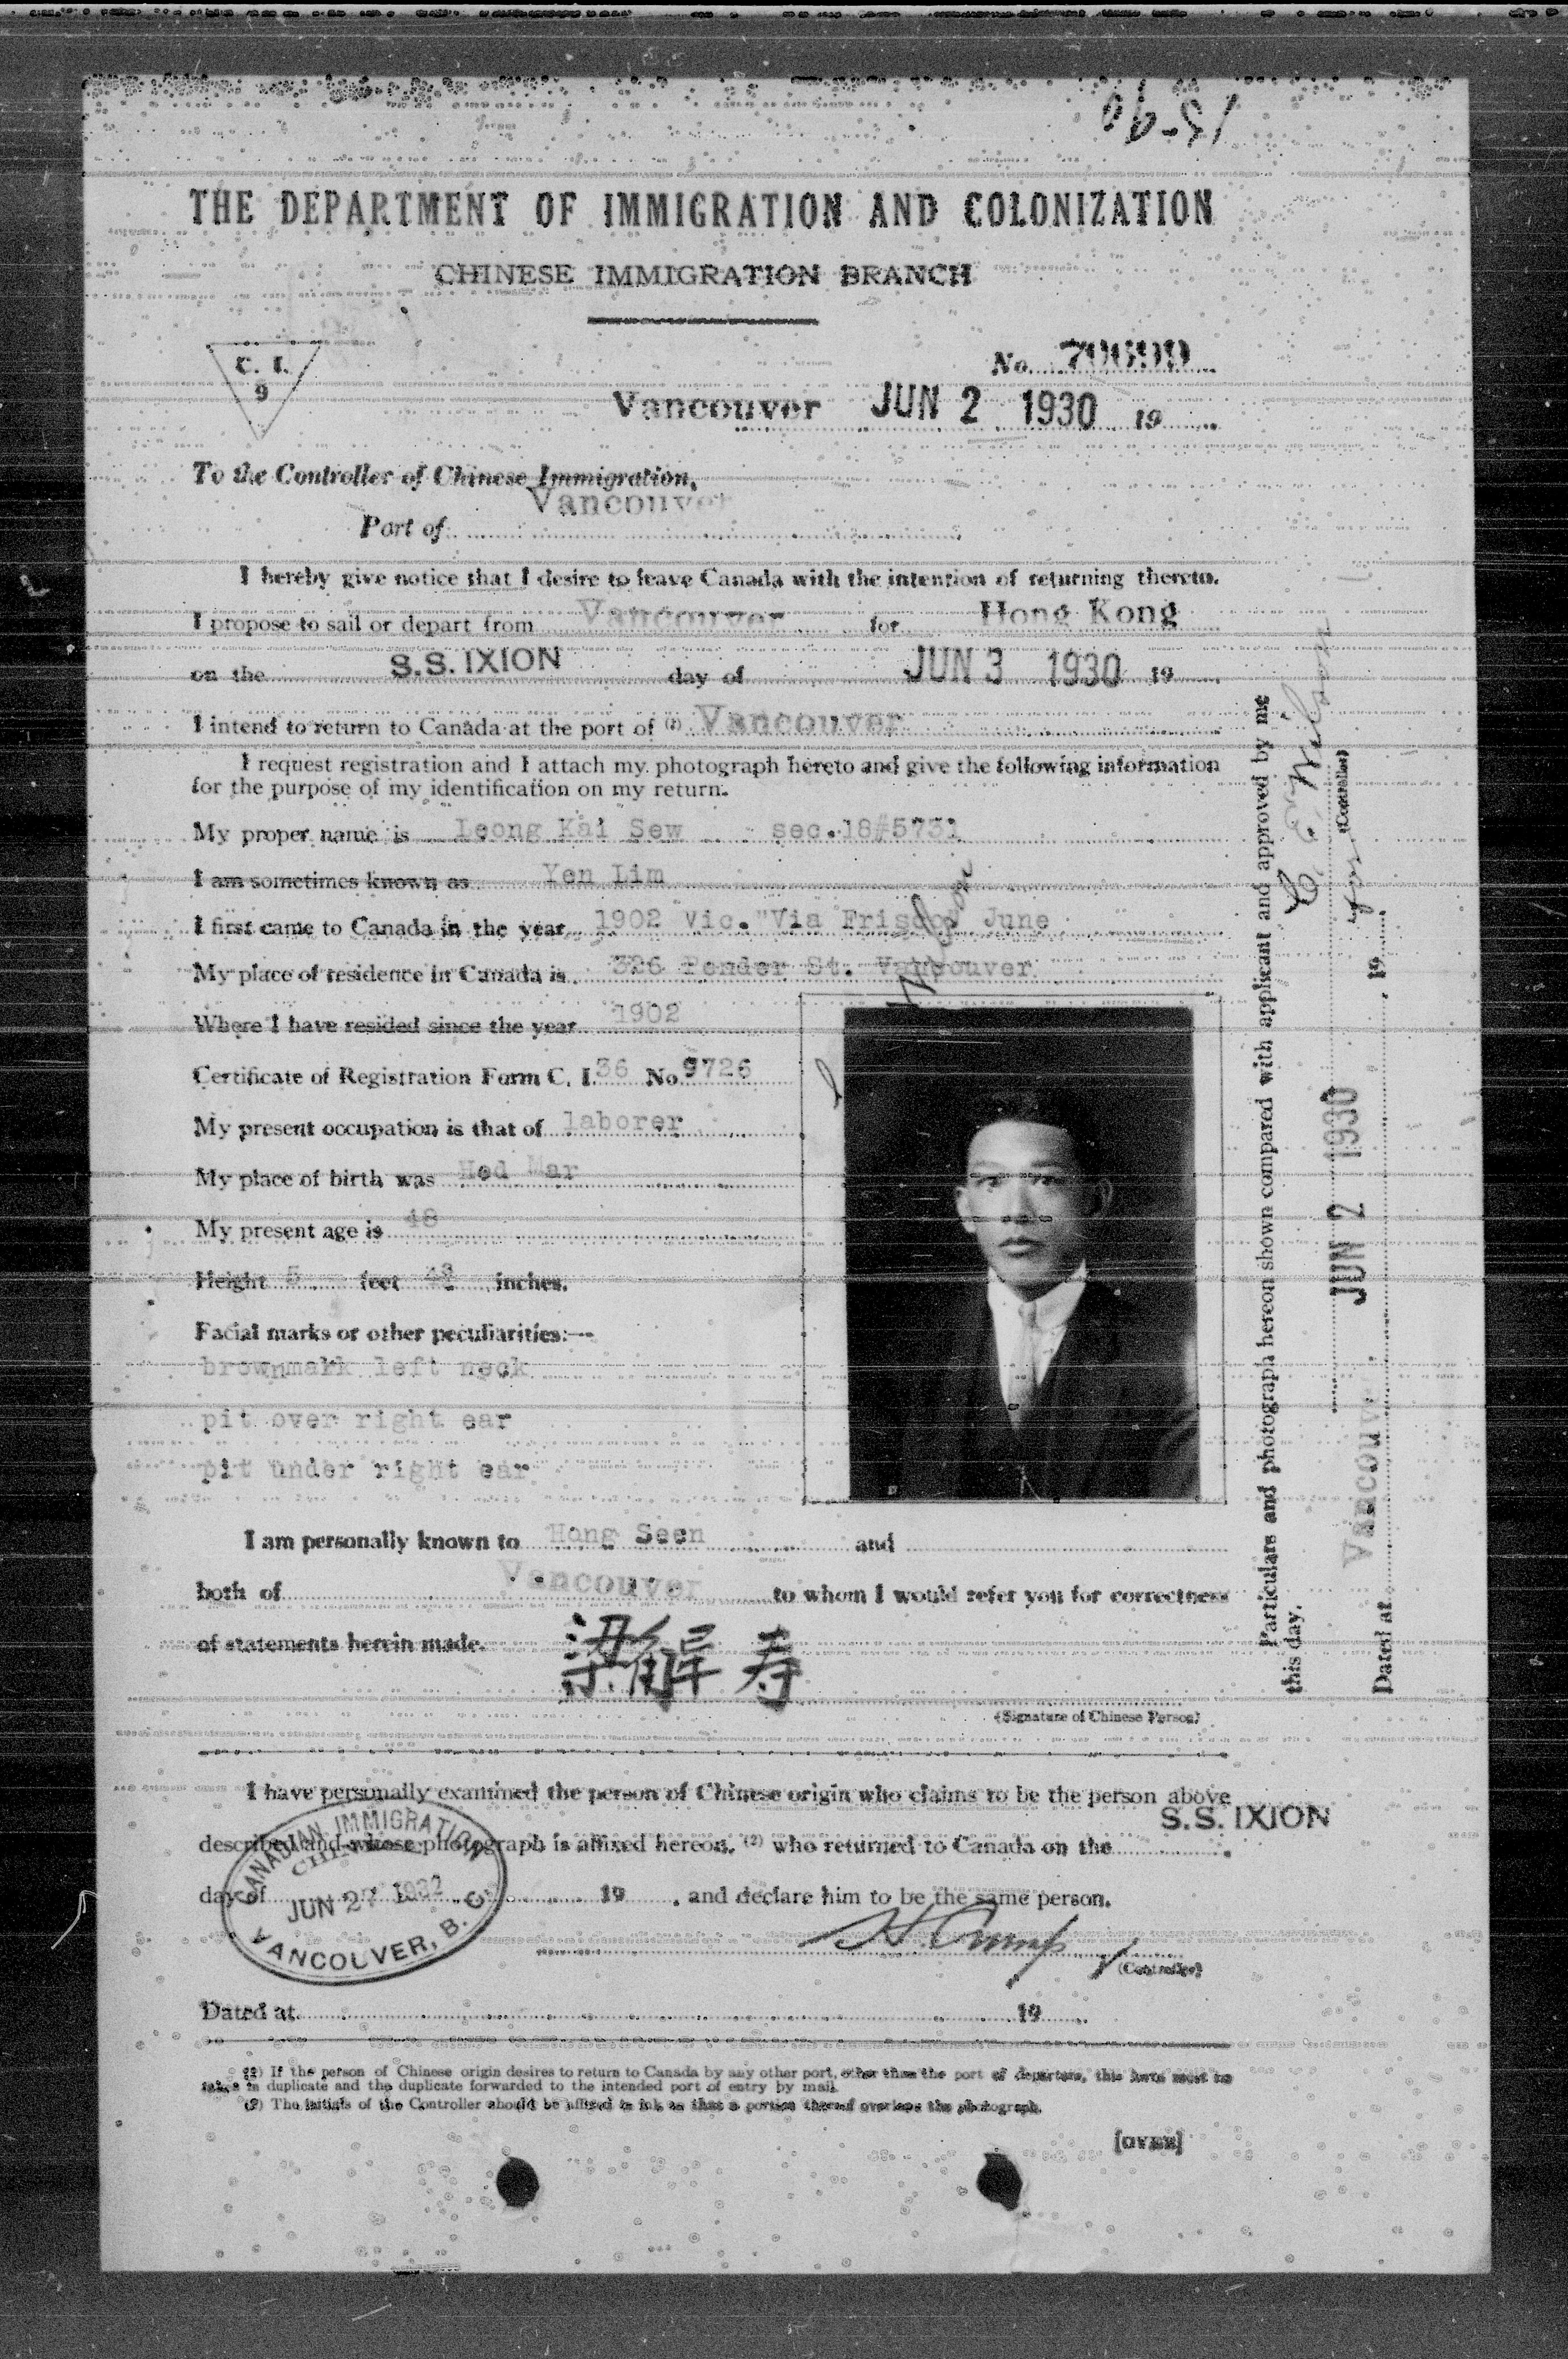 15-90
THE DEPARTMENT OF IMMIGRATION AND COLONIZATION
CHINESE IMMIGRATION BRANCH
C. I.
9
No. 70699
Vancouver JUN 2 1930 19
To the Controller of Chinese Immigration,
Port of Vancouver
I hereby give notice that I desire to leave Canada with the intention of returning thereto.
I propose to sail or depart from Vancouver for Hong Kong
on the S.S. IXION day of JUN 3 1930 19
I intend to return to Canada at the port of (1) Vancouver
I request registration and I attach my photograph hereto and give the following information
for the purpose of my identification on my return.
My proper name is Leong Kai Sew sec.18#5731
I am sometimes known as Yen Lim
I first came to Canada in the year 1902 Vic. "Via Frisco" June
My place of residence in Canada is 326 Pender St. Vancouver
Where I have resided since the year 1902
Certificate of Registration Form C. I. 36 No 9726
My present occupation is that of laborer
My place of birth was Hod Mar
My present age is 48
Height 5 feet inches.
Facial marks or other peculiarities:—
brownmark left neck
pit over right ear
pit under right ear
I am personally known to Hong Seen and
both of Vancouver to whom I would refer you for correctness
of statements herein made.
梁解寿
(Signature of Chinese Person)
I have personally examined the person of Chinese origin who claims to be the person above
described and whose photograph is affixed hereon, (2) who returned to Canada on the S.S. IXION
day of 19 , and declare him to be the same person.
CANADIAN IMMIGRATION
JUN 27 1932
VANCOUVER, B. C.
(Controller)
Dated at 19
(1) If the person of Chinese origin desires to return to Canada by any other port, other than the port of departure, this form must be
taken in duplicate and the duplicate forwarded to the intended port of entry by mail.
(2) The initials of the Controller should be affixed in ink so that a portion thereof overlaps the photograph.
[OVER]
Particulars and photograph hereon shown compared with applicant and approved by me
this day.
(Controller)
JUN 2 1930
Dated at Vancouver , 19